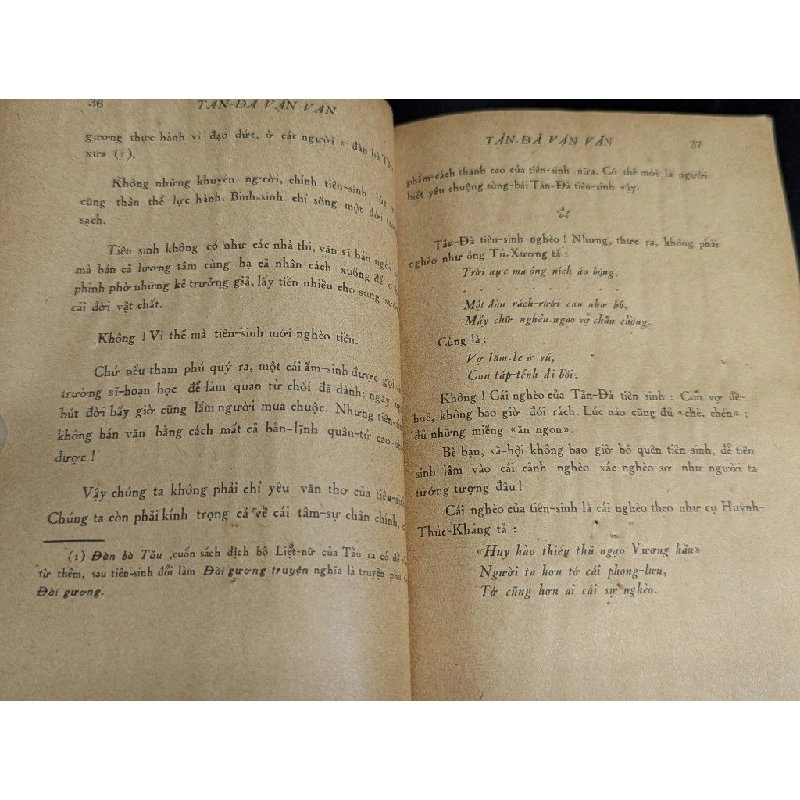 36 TẢN-ĐÀ VẬN VĂN
gương thực hành vì đạo đức, ở các người « đàn bà
xưa (1).
Không những khuyên người, chính tiên-sinh
cũng thân thể lực hành. Bình-sinh chỉ sống một đời
sạch.
Tiên sinh không có như các nhà thi, văn sĩ bán
mà bán cả lương tâm cùng hạ cả nhân cách xuống để
phỉnh phờ những kẻ trưởng giả, lấy tiền nhiều cho sung
cái đời vật chất.
Không ! Vì thế mà tiên-sinh mới nghèo tiền.
Chứ nếu tham phú quý ra, một cái ấm-sinh được
trường sĩ-hoạn học để làm quan từ chối đã dành; ngày
bút đời bấy giờ cũng lắm người mua chuộc. Nhưng tiên-
không bán văn bằng cách mất cả bản-lĩnh quân-tử
được !
Vậy chúng ta không phải chỉ yêu văn thơ của tiên-sinh
Chúng ta còn phải kính trọng cả về cái tâm-sự chân chính,
(1) Đàn bà Tầu ,cuốn sách dịch bộ Liệt-nữ của Tầu ra có
từ thêm, sau tiên-sinh đổi làm Đài gương truyện nghĩa là truyện
Đài gương.
TẢN-ĐÀ VẬN VĂN 37
phẩm-cách thanh cao của tiên-sinh nữa. Có thế mới là người
biết yêu chuộng sùng-bái Tản-Đà tiên-sinh vậy.
Tản-Đà tiên-sinh nghèo ! Nhưng, thực ra, không phải
nghèo như ông Tú-Xương tả :
Trời nực mà ông nich áo bông.
. . . . . . . .
Một đàn rách-rưới con như bố,
Mấy chữ nghêu-ngao vợ chán chồng.
Cùng là :
Vợ lăm-le ở vú,
Con tấp-tểnh đi bồi.
Không ! Cái nghèo của Tản-Đà tiên sinh : Con vợ đề-
huề, không bao giờ đói rách. Lúc nào cũng đủ «chè, chén» ;
đủ những miếng «ăn ngon».
Bè bạn, xã-hội không bao giờ bỏ quên tiên sinh, để tiên
sinh lâm vào cái cảnh nghèo xác nghèo sơ như người ta
tưởng tượng đâu !
Cái nghèo của tiên-sinh là cái nghèo theo như cụ Huỳnh-
Thúc-Kháng tả :
«Huy hào thiếp thủ ngạo Vương hầu»
Người ta hơn tớ cái phong-lưu,
Tớ cũng hơn ai cái sự nghèo.